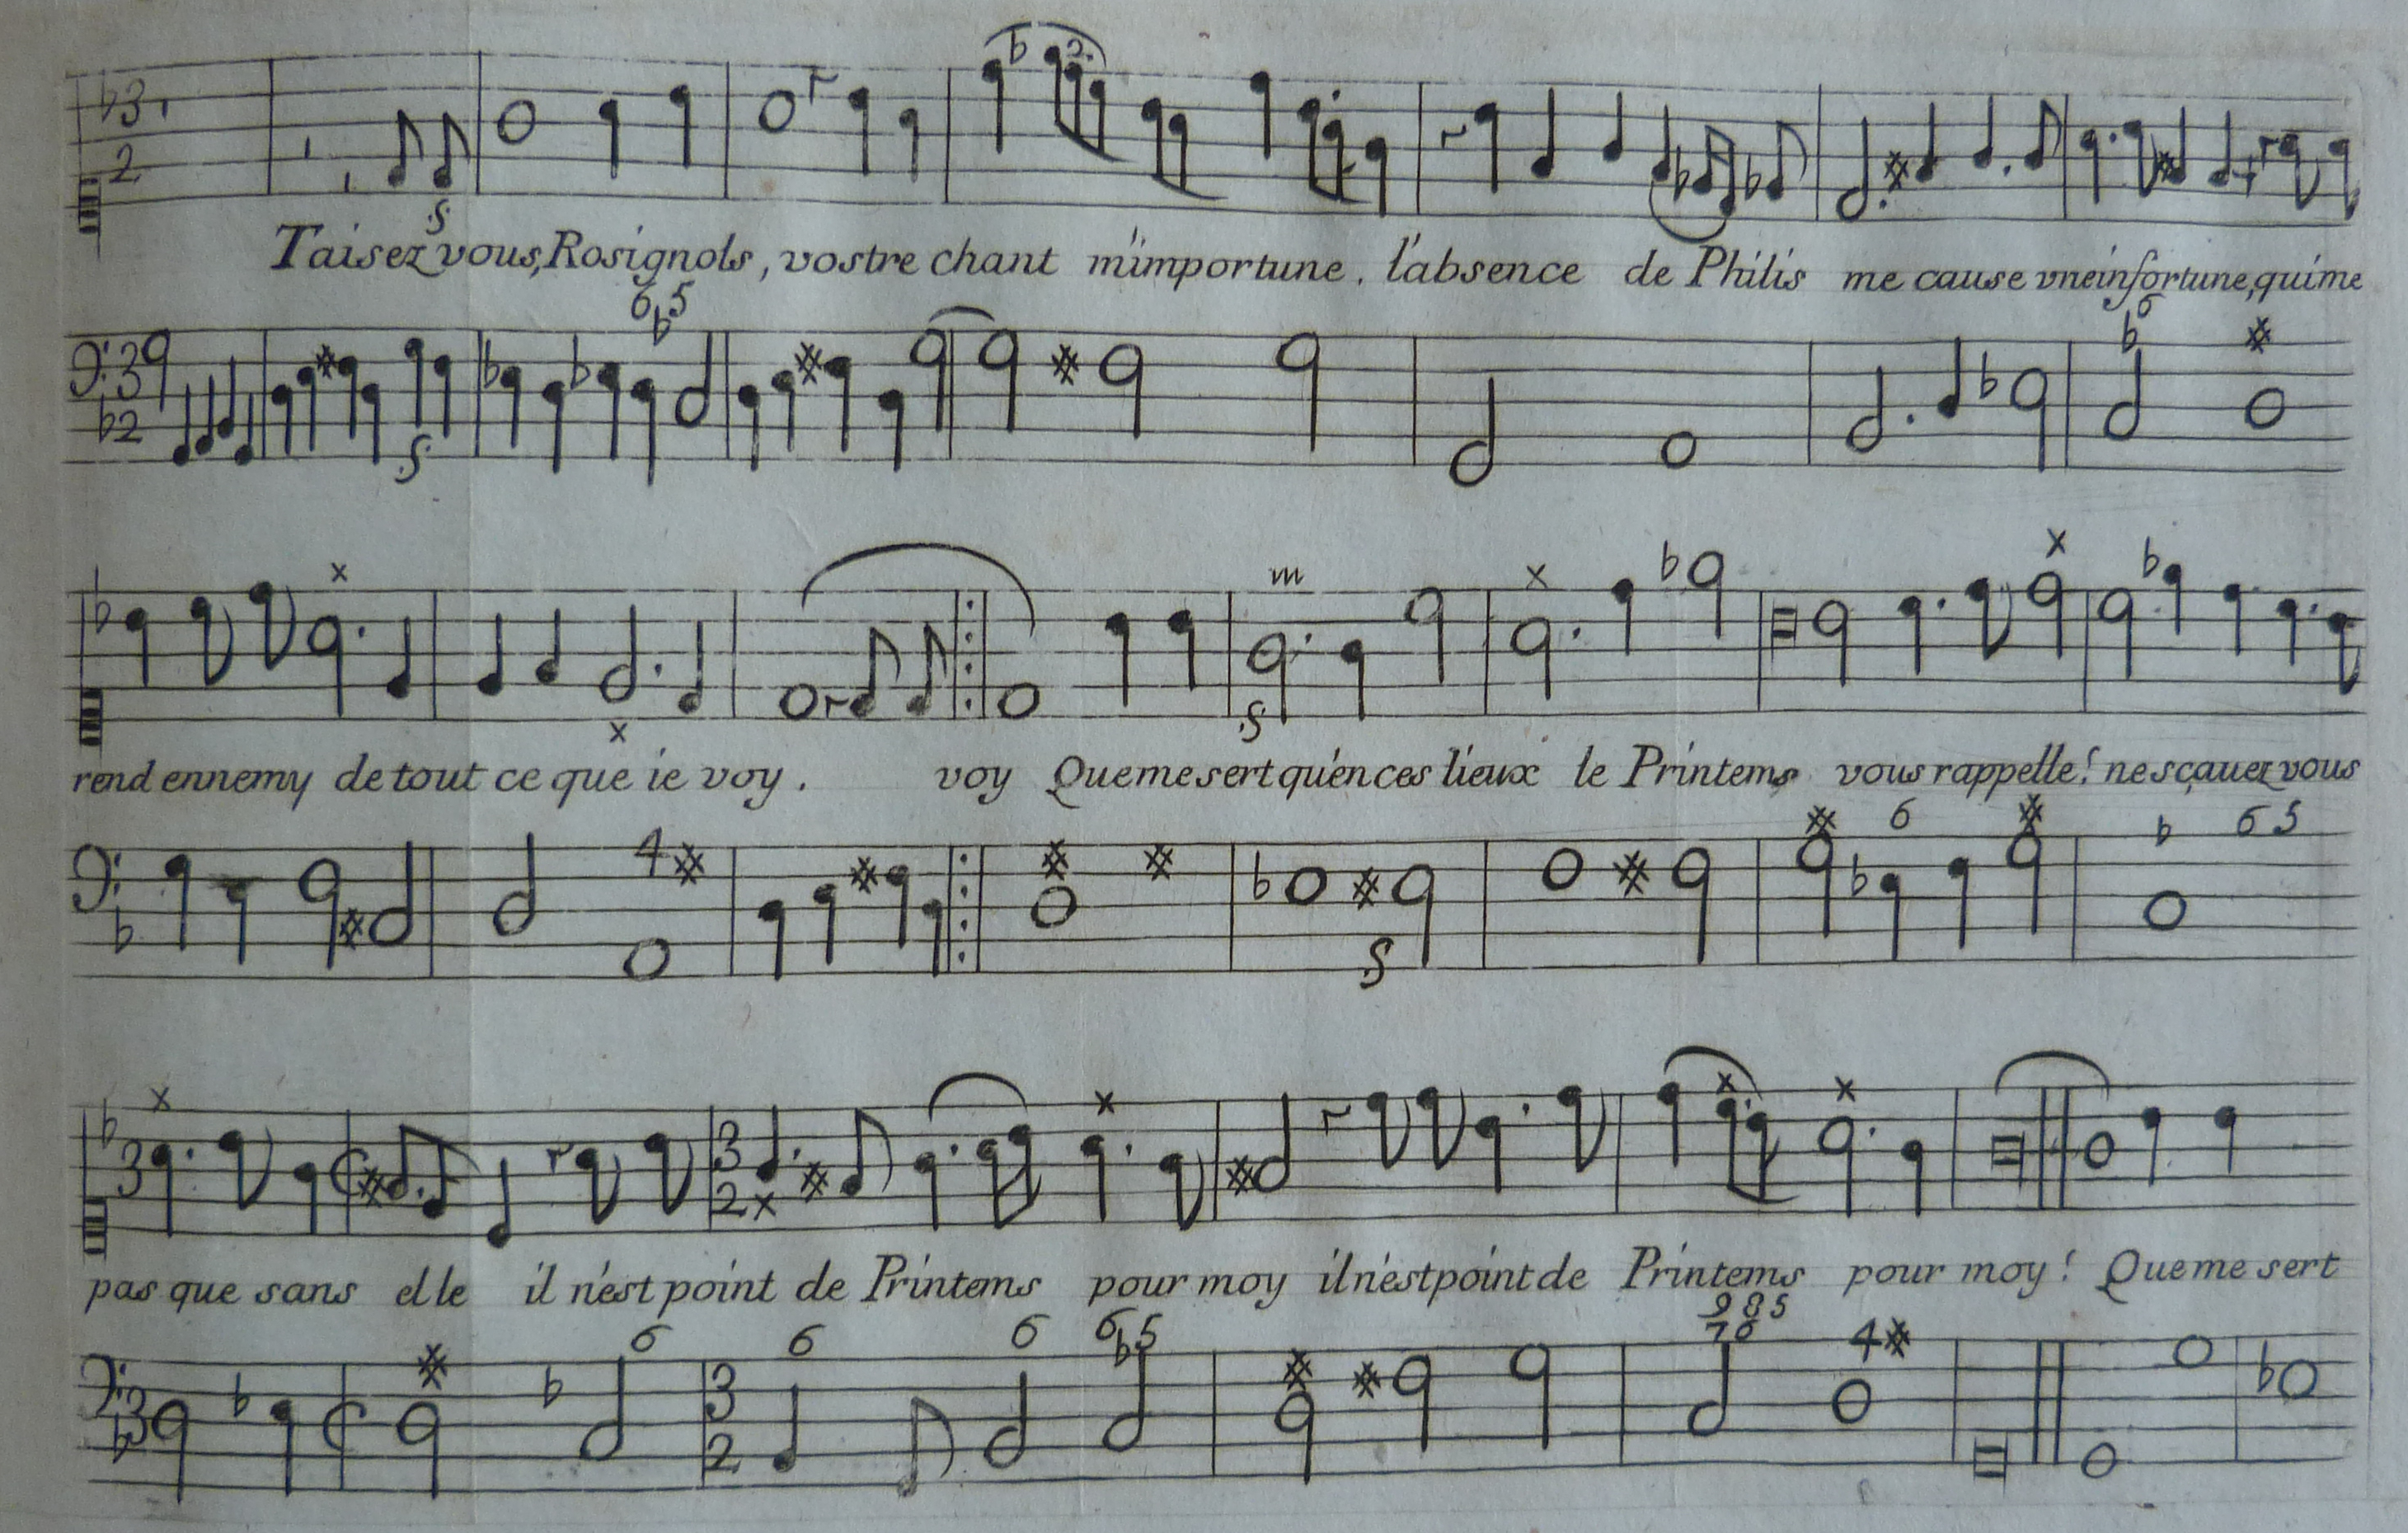 Taisez vous, Rosignols, vostre chant m'importune. l'absence de Philis me cause vne infortune, qui me
6 5
rend ennemy de tout ce que ie voy. voy Que me sert qu'en ces lieux le Printems vous rappelle! ne sçauez vous
4 6 6 5
pas que sans elle il n'est point de Printems pour moy il n'est point de Printems pour moy! Que me sert
6 6 6 6 5 9 8 5 7 6 4